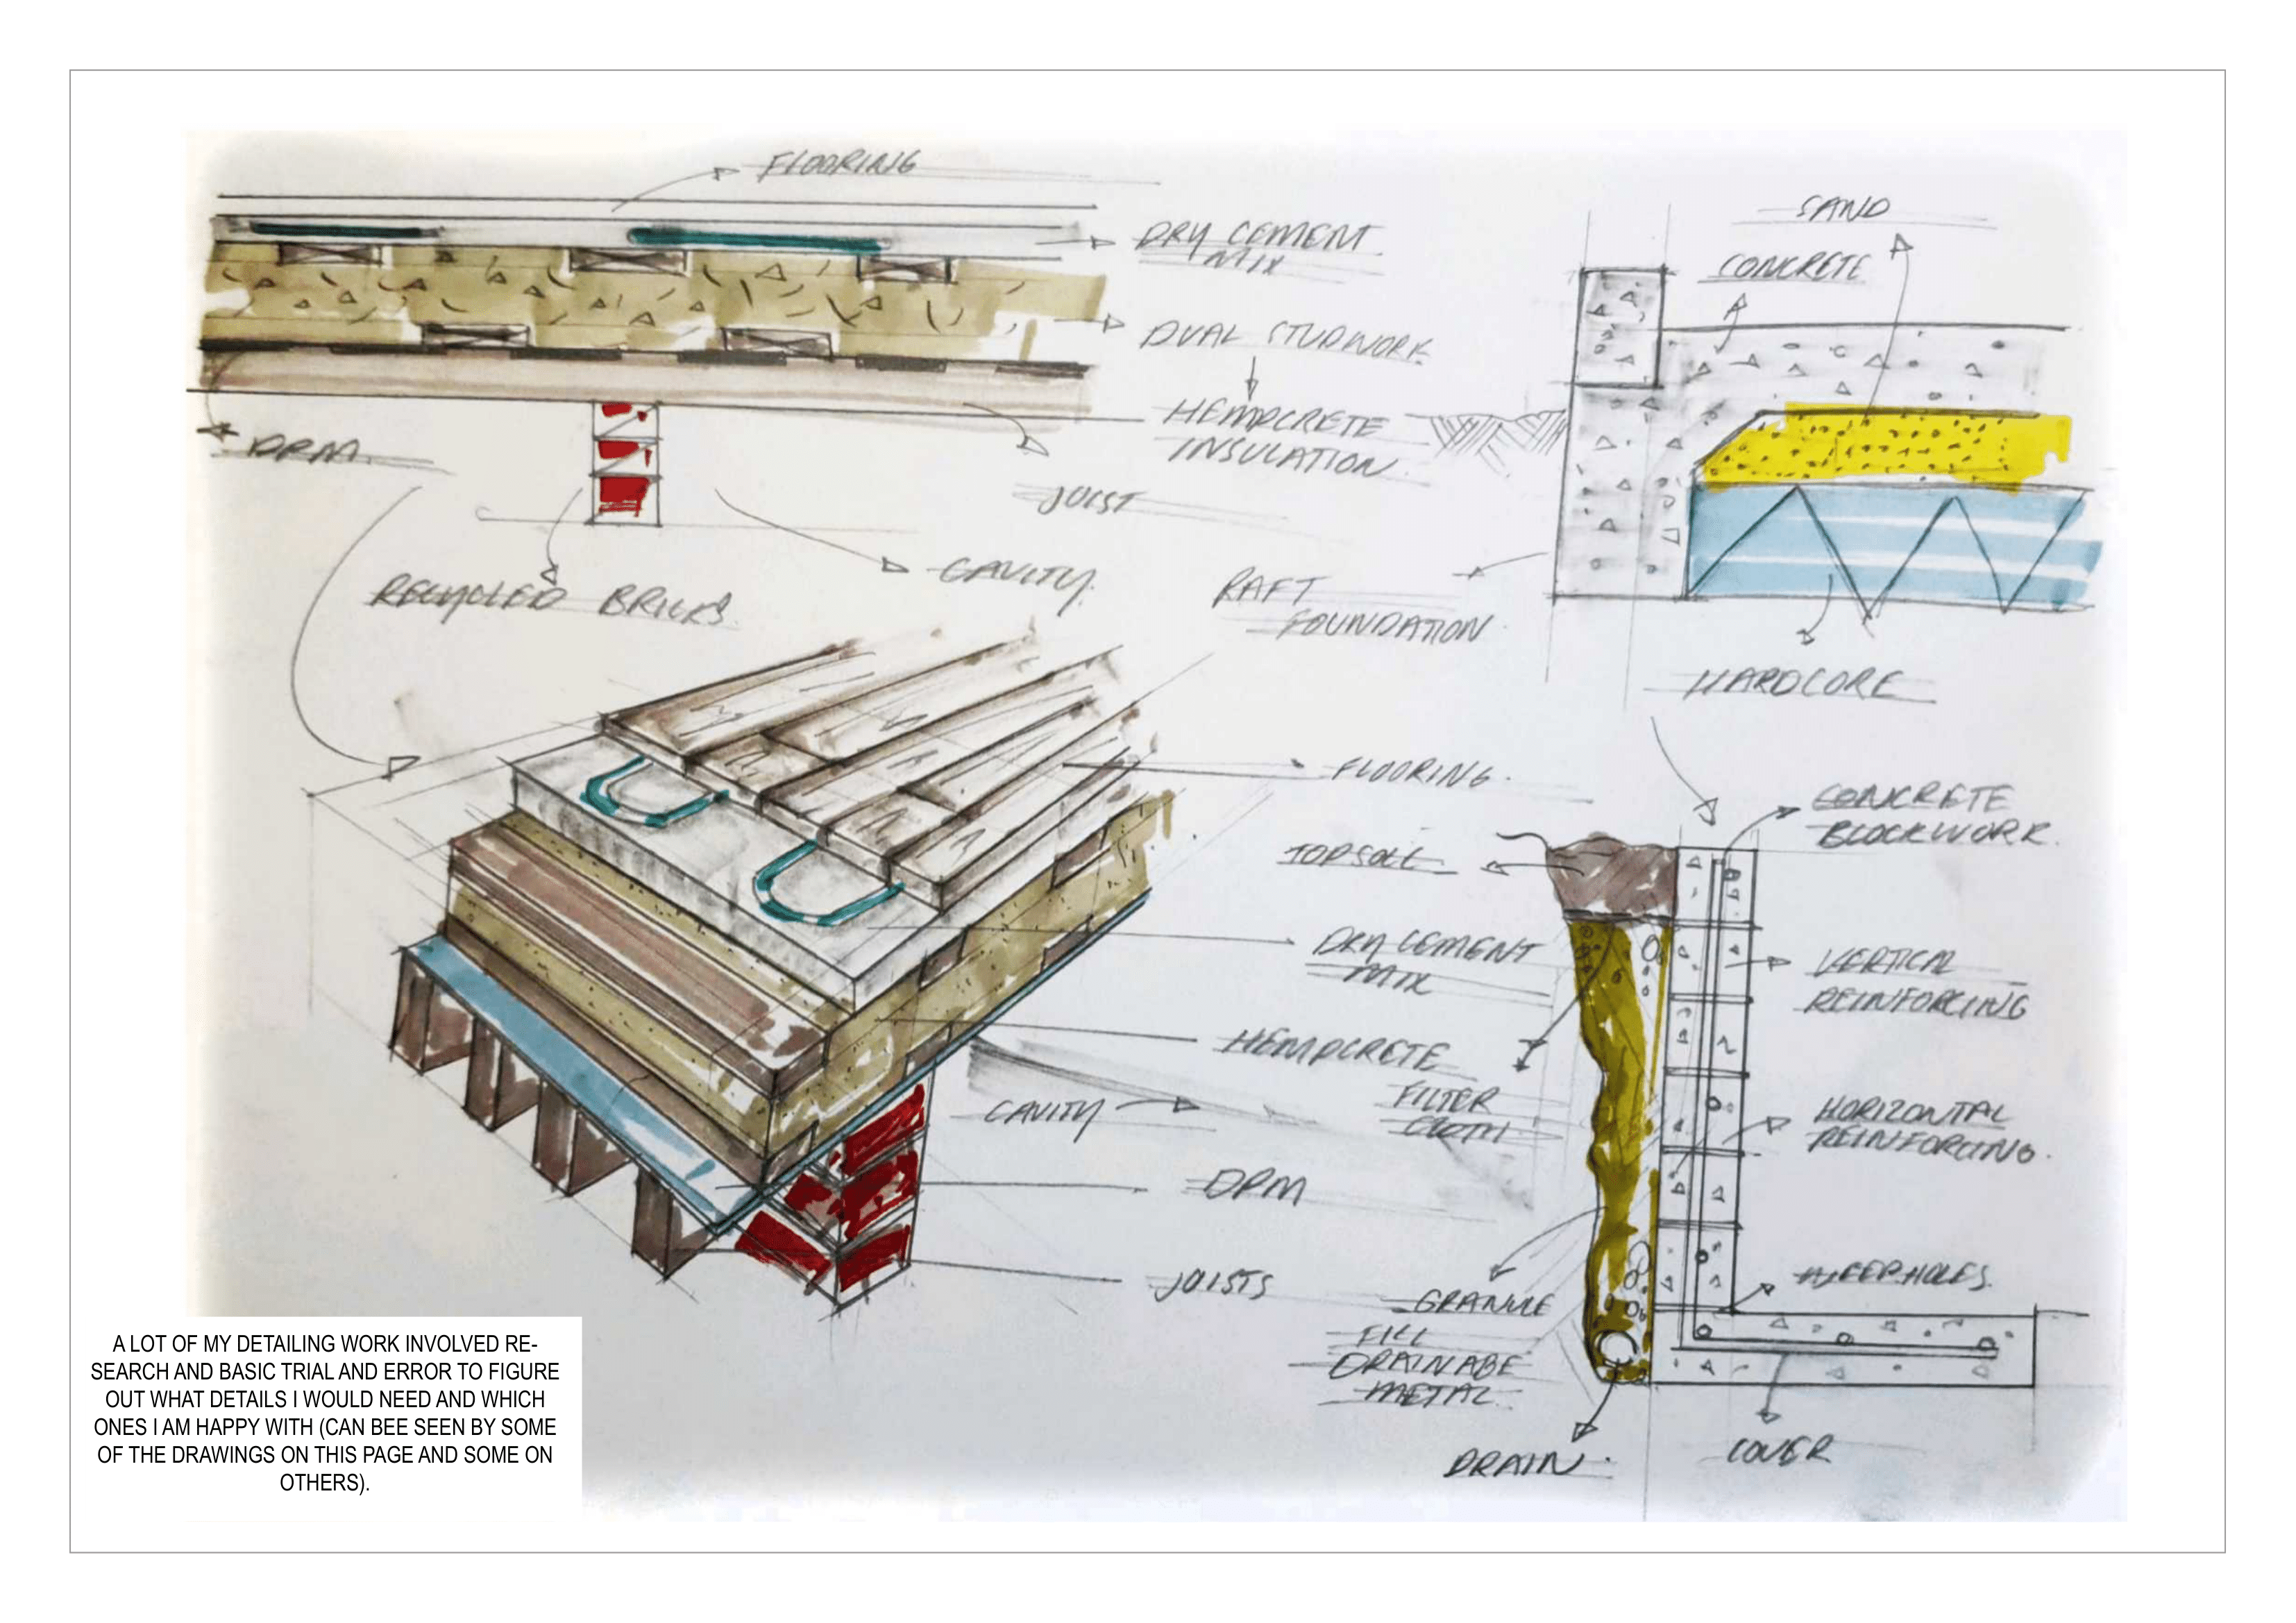 FLOORING
DRY CEMENT
MIX
DUAL STUDWORK
HEMPCRETE
INSULATION
JOIST
DPM
CAVITY
RECYCLED BRICKS
SAND
CONCRETE
RAFT
FOUNDATION
HARDCORE
FLOORING
DRY CEMENT
MIX
HEMPCRETE
CAVITY
DPM
JOISTS
TOPSOIL
CONCRETE
BLOCKWORK
VERTICAL
REINFORCING
FILTER
CLOTH
HORIZONTAL
REINFORCING
WEEPHOLES
FILL
METAL
DRAIN
COVER
A LOT OF MY DETAILING WORK INVOLVED RE-
SEARCH AND BASIC TRIAL AND ERROR TO FIGURE
OUT WHAT DETAILS I WOULD NEED AND WHICH
ONES I AM HAPPY WITH (CAN BEE SEEN BY SOME
OF THE DRAWINGS ON THIS PAGE AND SOME ON
OTHERS).